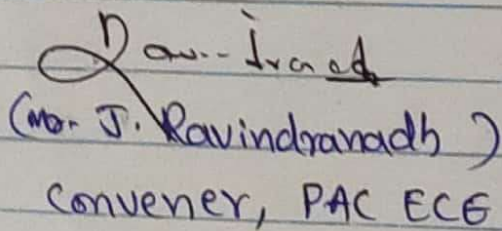 (Mr. J. Ravindranadh)
Convener, PAC ECE